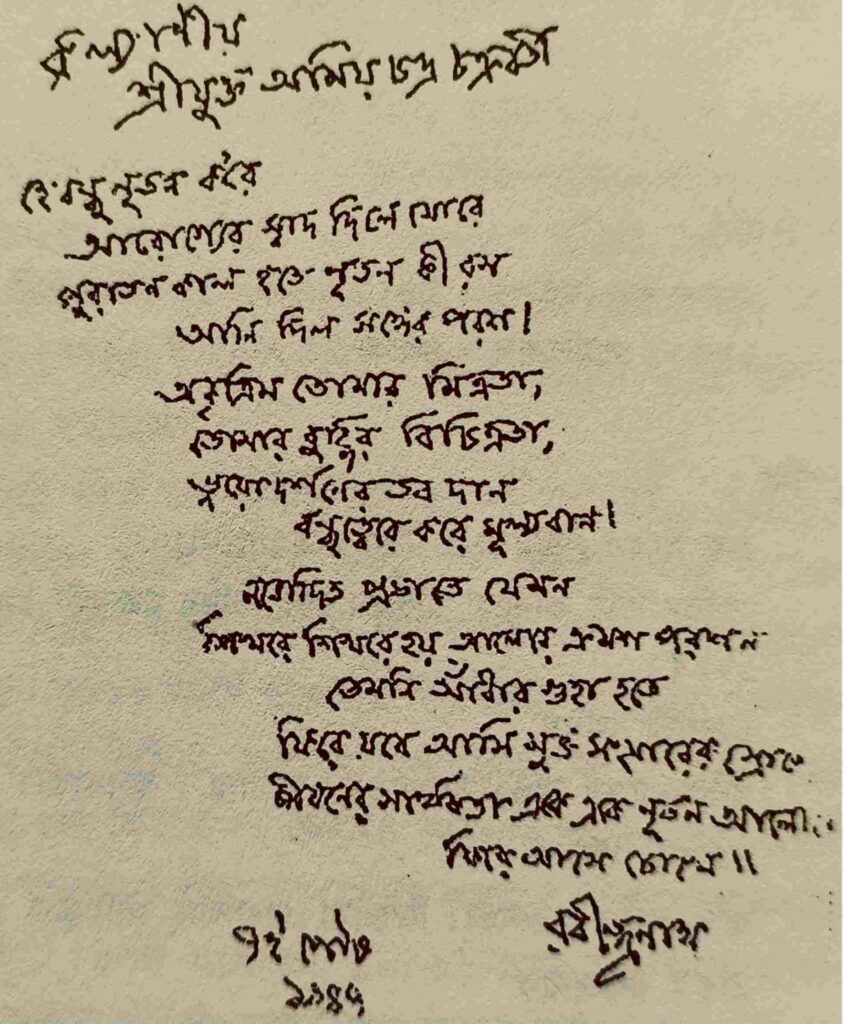 কল্যাণীয়
শ্রীযুক্ত অমিয় চন্দ্র চক্রবর্তী
হে বন্ধু নূতন ক'রে
আরোগ্যের স্বাদ দিলে মোরে
পুরাতন কাল হতে নূতন কী রস
আনি দিল সঙ্গের পরশ।
অকৃত্রিম তোমার মিত্রতা,
তোমার বুদ্ধির বিচিত্রতা,
ভূয়োদর্শনের তব দান
বন্ধুত্বেরে করে মূল্যবান।
নবোদিত প্রভাতে যেমন
শিখরে শিখরে হয় আলোর ক্রমশ পরশন
তেমনি আঁধার গুহা হতে
ফিরে যবে আসি মুক্ত সংসারের স্রোতে
জীবনের সার্থকতা একে একে নূতন আলোকে
ফিরে আসে চোখে॥
৭ই পৌষ
রবীন্দ্রনাথ